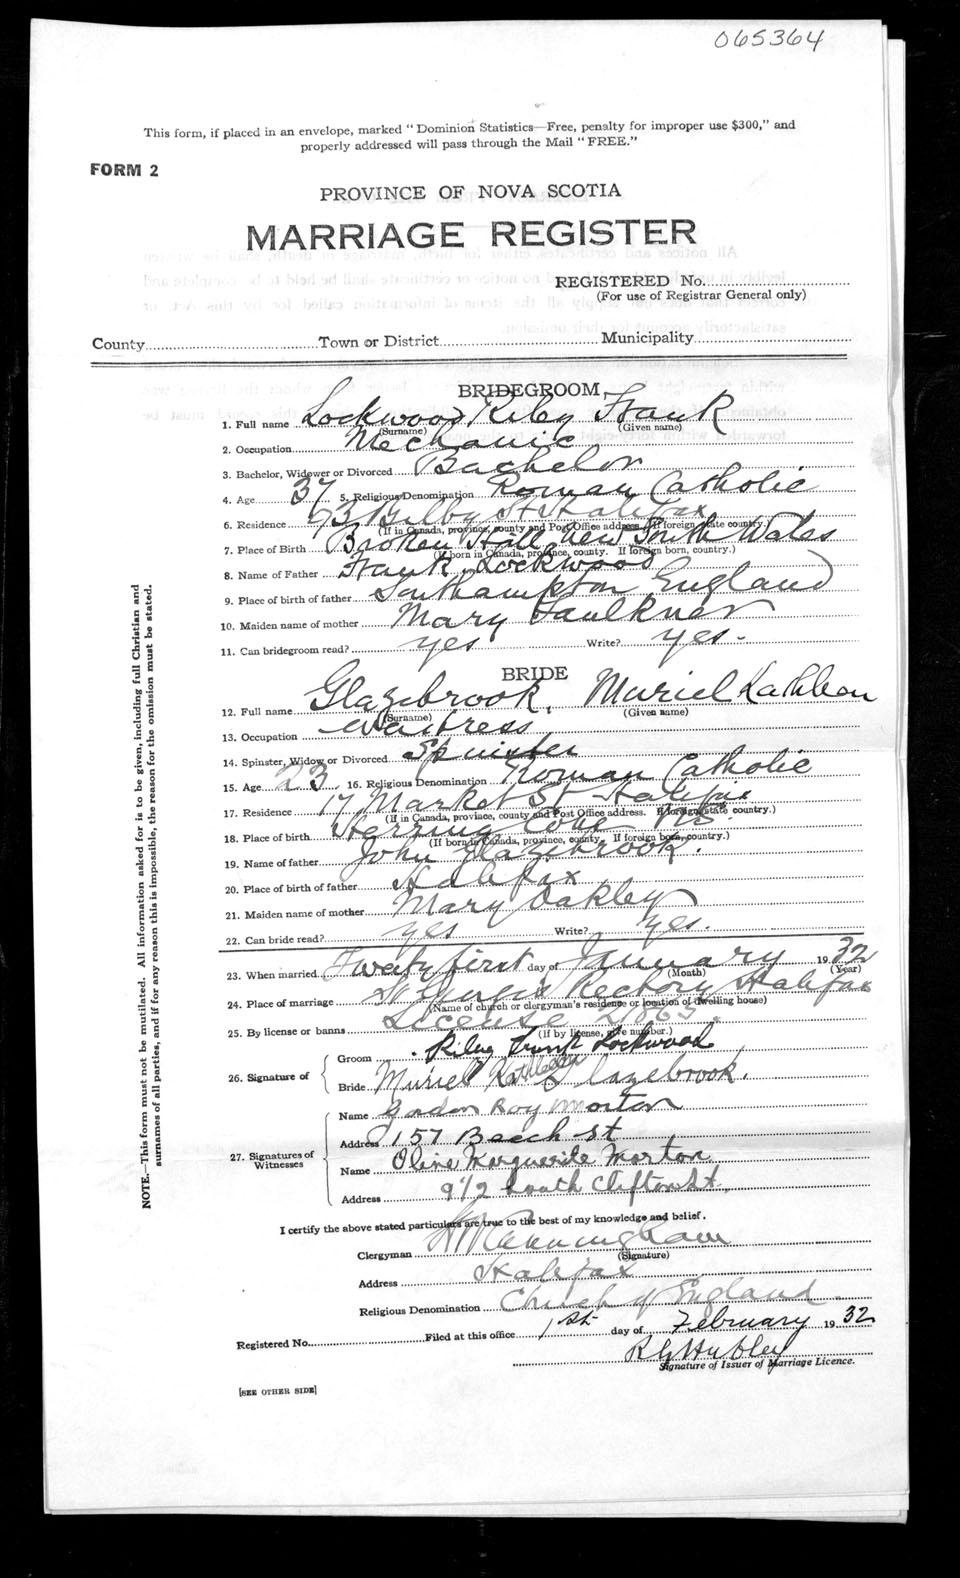 065364
This form, if placed in an envelope, marked "Dominion Statistics—Free, penalty for improper use $300," and
properly addressed will pass through the Mail "FREE."
FORM 2
PROVINCE OF NOVA SCOTIA
MARRIAGE REGISTER
REGISTERED No.
(For use of Registrar General only)
County Town or District Municipality
BRIDEGROOM
1. Full name Lockwood, Riley Frank
(Surname) (Given name)
2. Occupation Mechanic
3. Bachelor, Widower or Divorced Bachelor
4. Age 37 5. Religious Denomination Roman Catholic
6. Residence 73 Bilby St Halifax
(If in Canada, province, county and Post Office address. If foreign state country.)
7. Place of Birth Broken Hill New South Wales
(If born in Canada, province, county. If foreign born, country.)
8. Name of Father Frank Lockwood
9. Place of birth of father Southampton England
10. Maiden name of mother Mary Faulkner
11. Can bridegroom read? yes Write? yes.
BRIDE
12. Full name Glazebrook, Muriel Kathleen
(Surname) (Given name)
13. Occupation Waitress
14. Spinster, Widow or Divorced Spinster
15. Age 23 16. Religious Denomination Roman Catholic
17. Residence 17 Market St Halifax
(If in Canada, province, county and Post Office address. If foreign state country.)
18. Place of birth Herring Cove NS
(If born in Canada, province, county. If foreign born, country.)
19. Name of father John Glazebrook.
20. Place of birth of father Halifax
21. Maiden name of mother Mary Oakley
22. Can bride read? yes Write? yes.
23. When married Twenty first day of January 19 32
(Month) (Year)
24. Place of marriage St George's Rectory Halifax
(Name of church or clergyman's residence or location of dwelling house)
25. By license or banns License
(If by license, give number.)
26. Signature of
Groom Riley Frank Lockwood
Bride Muriel Kathleen Glazebrook.
27. Signatures of Witnesses
Name Gordon Roy Morton
Address 157 Beech St
Name Olive Marguerite Morton
Address 9½ South Clifton St.
I certify the above stated particulars are true to the best of my knowledge and belief.
Clergyman Cunningham
(Signature)
Address Halifax
Religious Denomination Church of England
Registered No. Filed at this office 1st day of February 19 32
Hubley
Signature of Issuer of Marriage Licence.
[SEE OTHER SIDE]
NOTE.—This form must not be mutilated. All information asked for is to be given, including full Christian and
surnames of all parties, and if for any reason this is impossible, the reason for the omission must be stated.